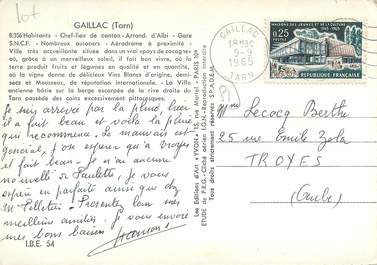 lot
GAILLAC (Tarn)
8.356 Habitants - Chef-lieu de canton - Arrond. d'Albi - Gare
S.N.C.F. - Nombreux autocars - Aérodrome à proximité -
Ville très accueillante située dans un vrai «pays de cocagne»
où, grâce à un merveilleux soleil, il fait bon vivre, où la
terre produit fruits et légumes en quantité et en abondance,
où l'on donne de délicieux Vins Blancs d'origine, demi-
secs et Mousseux, de réputation internationale - La Ville
ancienne bâtie sur la berge escarpée de la rive droite du
Tarn possède des coins excessivement pittoresques.
Je suis arrivée par la pluie, hier
il a fait beau et voilà la pluie
qui recommence. Le mauvais est
général, j'en espère qu'à Troyes
il fait beau. Je n'ai aucune
nouvelle de Paulette, je vous
espère en parfaite ainsi que chez
M. Pelletier. Présentez leur mes
meilleures amitiés. Je vous envoie
mes bons baisers.
I.B.E. 54
Les Editions d'Art «YVON», 15, rue Martel - PARIS 10e
ETUDE de P.E.G. Cliché aérien I.G.N. - Reproduction interdite
Tous droits strictement réservés S.P.A.D.E.M.
GAILLAC
18H30
9-9
1965
TARN
MAISONS DES JEUNES ET DE LA CULTURE
0,25
1945-1965
POSTES
RÉPUBLIQUE FRANÇAISE
Mme Lecocq Berthe
25 rue Emile Zola
TROYES
(Aube)